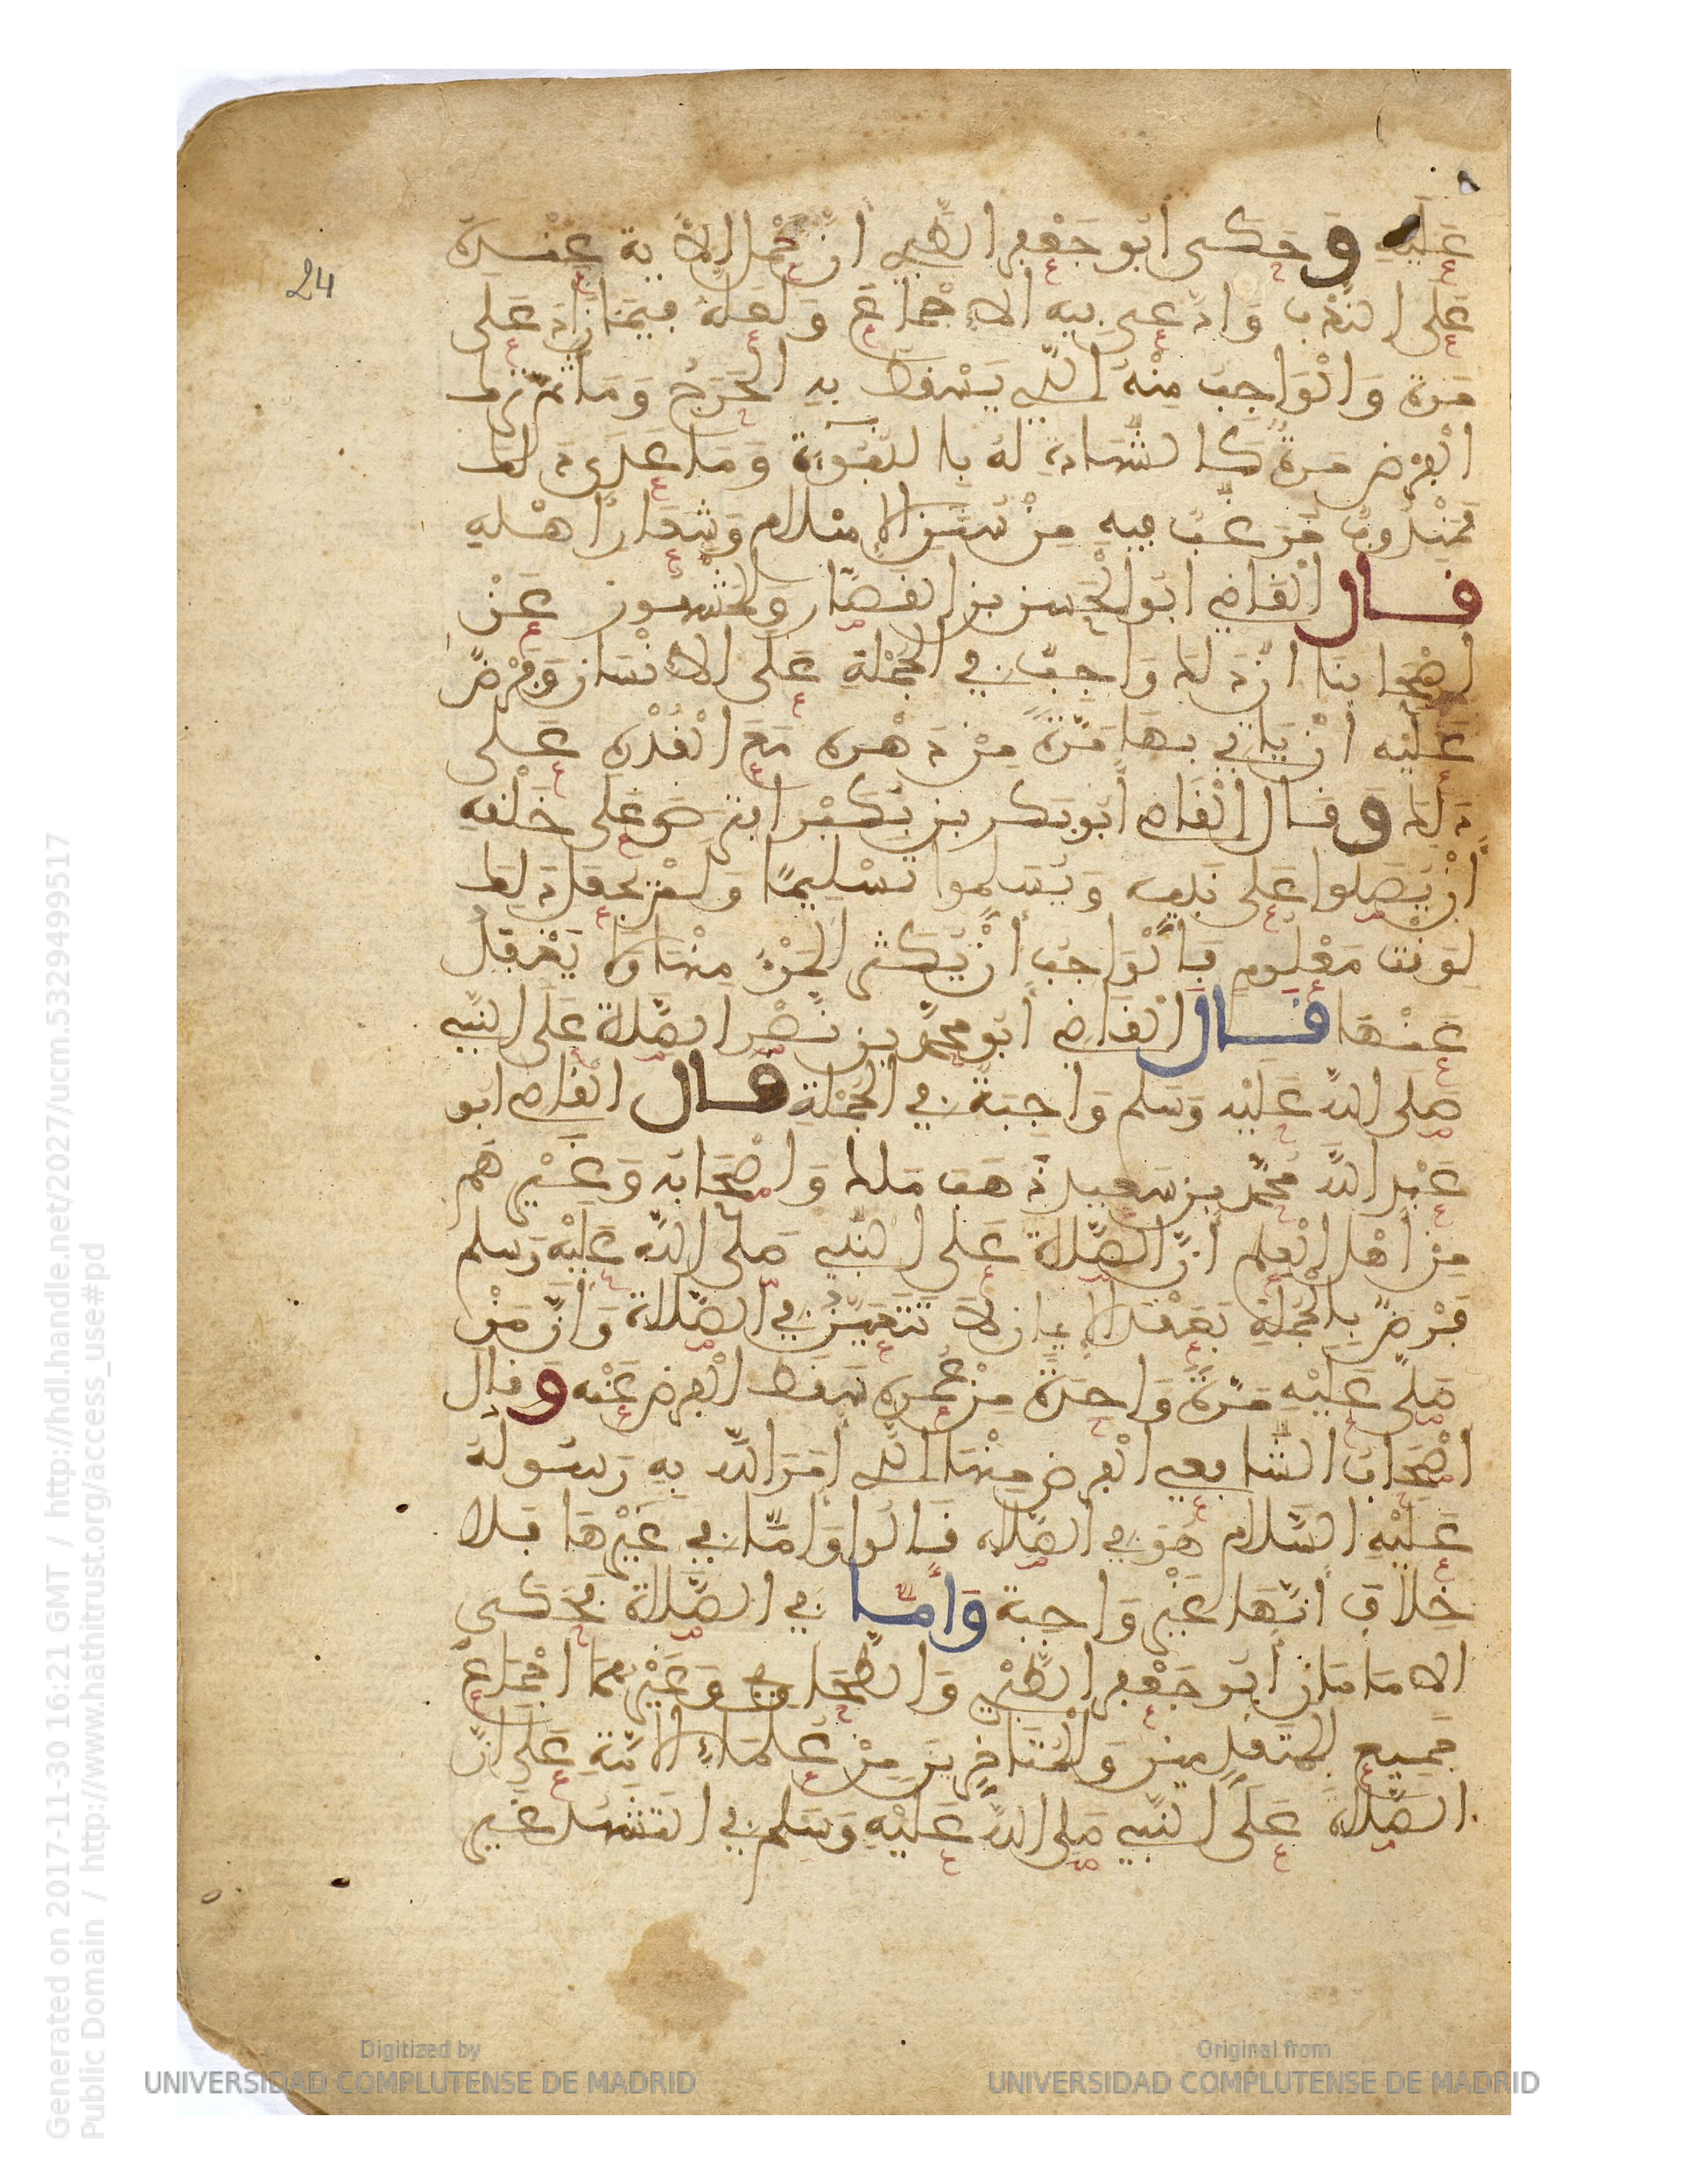 24
عليه وحكى أبو جعفر الطبري أن محمل الآية عنده
على الندب وادعى فيه الإجماع ولعله فيما زاد على
مرة والواجب منه الذي يسقط به الحرج ومأثم ترك
الفرض مرة كالشهادة له بالنبوة وما عدى ذلك
فمندوب مرغب فيه من سنن الإسلام وشعار أهله
قال القاضي أبو الحسن بن القصار والمشهور عن
أصحابنا أن ذلك واجب في الجملة على الإنسان وفرض
عليه أن يأتي بها مرة من دهره مع القدرة على
ذلك وقال القاضي أبو بكر بن بكير افترض على خلقه
أن يصلوا على نبيه ويسلموا تسليما ولم يجعل ذلك
لوقت معلوم فالواجب أن يكثر المرء منها ولا يغفل
عنها قال القاضي أبو محمد بن نصر الصلاة على النبي
صلى الله عليه وسلم واجبة في الجملة قال القاضي أبو
عبد الله محمد بن سعيد ذهب مالك وأصحابه وغيرهم
من أهل العلم أن الصلاة على النبي صلى الله عليه وسلم
فرض بالجملة بعقد الإيمان لا تتعين في الصلاة وأن من
صلى عليه مرة واحدة من عمره سقط الفرض عنه وقال
أصحاب الشافعي الفرض منها الذي أمر الله به ورسوله
عليه السلام هو في الصلاة قالوا وأما في غيرها فلا
خلاف أنها غير واجبة وأما في الصلاة فحكى
الإمامان أبو جعفر الطبري والطحاوي وغيرهما إجماع
جميع المتقدمين والمتأخرين من علماء الأمة على أن
الصلاة على النبي صلى الله عليه وسلم في التشهد غير
Digitized by
UNIVERSIDAD COMPLUTENSE DE MADRID
Original from
UNIVERSIDAD COMPLUTENSE DE MADRID
Generated on 2017-11-30 16:21 GMT / http://hdl.handle.net/2027/ucm.5329499517
Public Domain / http://www.hathitrust.org/access_use#pd